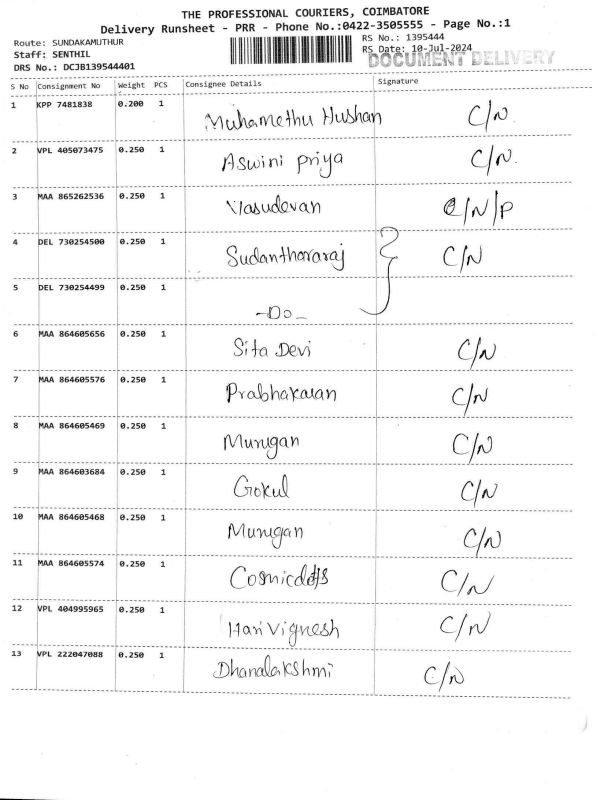 THE PROFESSIONAL COURIERS, COIMBATORE
Delivery Runsheet - PRR - Phone No.:0422-3505555 - Page No.:1
Route: SUNDAKAMUTHUR RS No.: 1395444
Staff: SENTHIL RS Date: 10-Jul-2024
DOCUMENT DELIVERY
DRS No.: DCJB139544401
S No Consignment No Weight PCS Consignee Details Signature
1 KPP 7481838 0.200 1 Muhamethu Hushan C/N
2 VPL 405073475 0.250 1 Aswini Priya C/N
3 MAA 865262536 0.250 1 Vasudevan C/N/P
4 DEL 730254500 0.250 1 Sudanthararaj C/N
5 DEL 730254499 0.250 1 -Do-
6 MAA 864605656 0.250 1 Sita Devi C/N
7 MAA 864605576 0.250 1 Prabhakaran C/N
8 MAA 864605469 0.250 1 Murugan C/N
9 MAA 864603684 0.250 1 Gokul C/N
10 MAA 864605468 0.250 1 Murugan C/N
11 MAA 864605574 0.250 1 C/N
12 VPL 404995965 0.250 1 Hari Vignesh C/N
13 VPL 222047088 0.250 1 Dhanalakshmi C/N